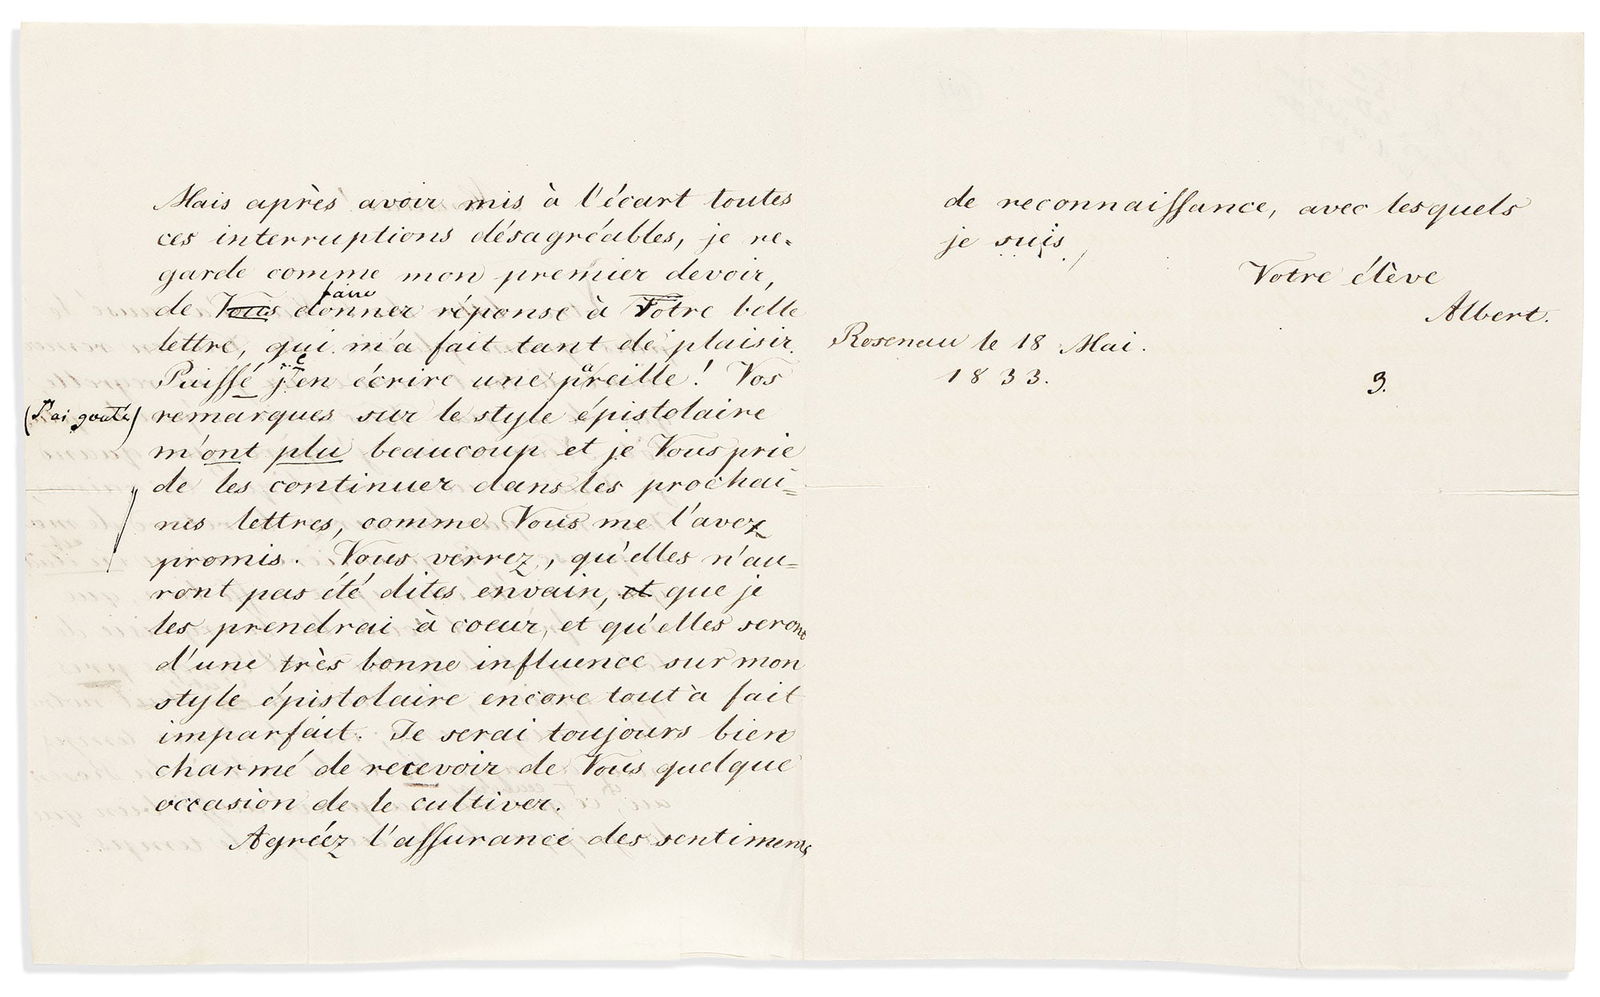 Mais après avoir mis à l'écart toutes
ces interruptions désagréables, je re-
garde comme mon premier devoir,
faire
de Vous donner réponse à Votre belle
lettre, qui m'a fait tant de plaisir.
Puissé j'en écrire une preille! Vos
(J'ai gouté) remarques sur le style épistolaire
m'ont plu beaucoup et je Vous prie
de les continuer dans les prochai=
nes lettres, comme Vous me l'avez
promis. Vous verrez, qu'elles n'au=
ront pas été dites envain, et que je
les prendrai à coeur, et qu'elles seront
d'une très bonne influence sur mon
style épistolaire encore tout à fait
imparfait. Je serai toujours bien
charmé de recevoir de Vous quelque
occasion de le cultiver.
Agréez l'assurance des sentimens
de reconnaissance, avec lesquels
je suis,
Votre élève
Albert.
Rosenau le 18 Mai.
1833.
3.